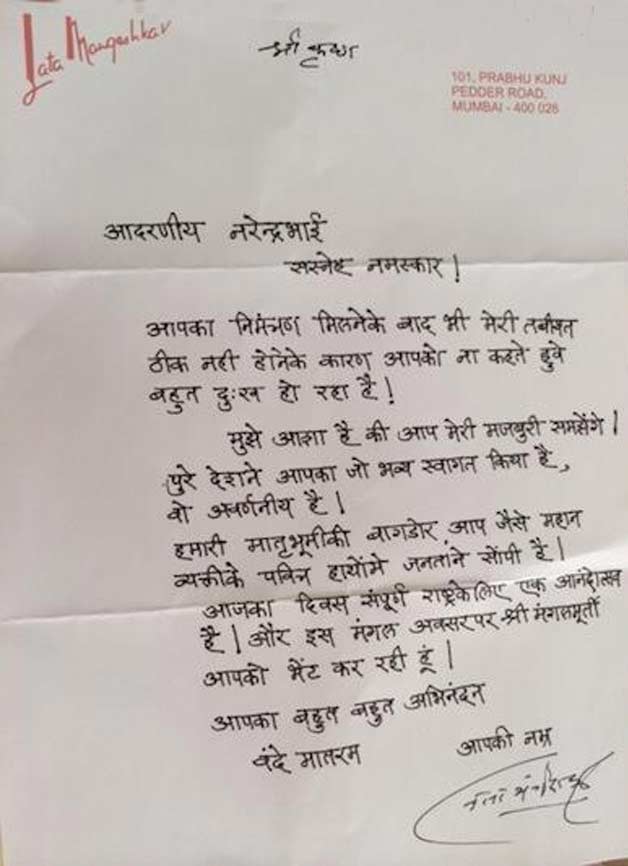 Lata Mangeshkar
श्री कृष्ण
101, PRABHU KUNJ
PEDDER ROAD,
MUMBAI - 400 026
आदरणीय नरेन्द्रभाई
सस्नेह नमस्कार!
आपका निमंत्रण मिलनेके बाद भी मेरी तबीयत
ठीक नही होनेके कारण आपको ना कहते हुवे
बहुत दुःख हो रहा है!
मुझे आशा है की आप मेरी मजबुरी समझेंगे।
पुरे देशने आपका जो भव्य स्वागत किया है,
वो अवर्णनीय है।
हमारी मातृभूमीकी बागडोर आप जैसे महान
व्यक्तीके पवित्र हाथोंमे जनताने सोंपी है।
आजका दिवस संपूर्ण राष्ट्रकेलिए एक आनंदोत्सव
है। और इस मंगल अवसरपर श्री मंगलमूर्ती
आपको भेंट कर रही हूं।
आपका बहुत बहुत अभिनंदन
वंदे मातरम आपकी नम्र
लता मंगेशकर